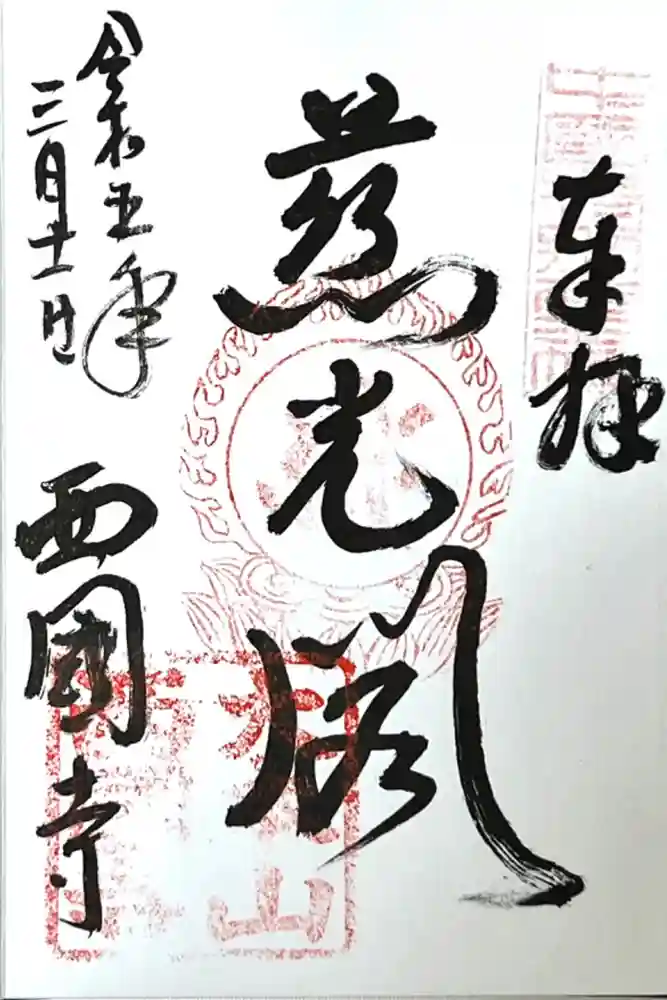 奉拝
慈光閣
令和五年
三月十一日
西國寺